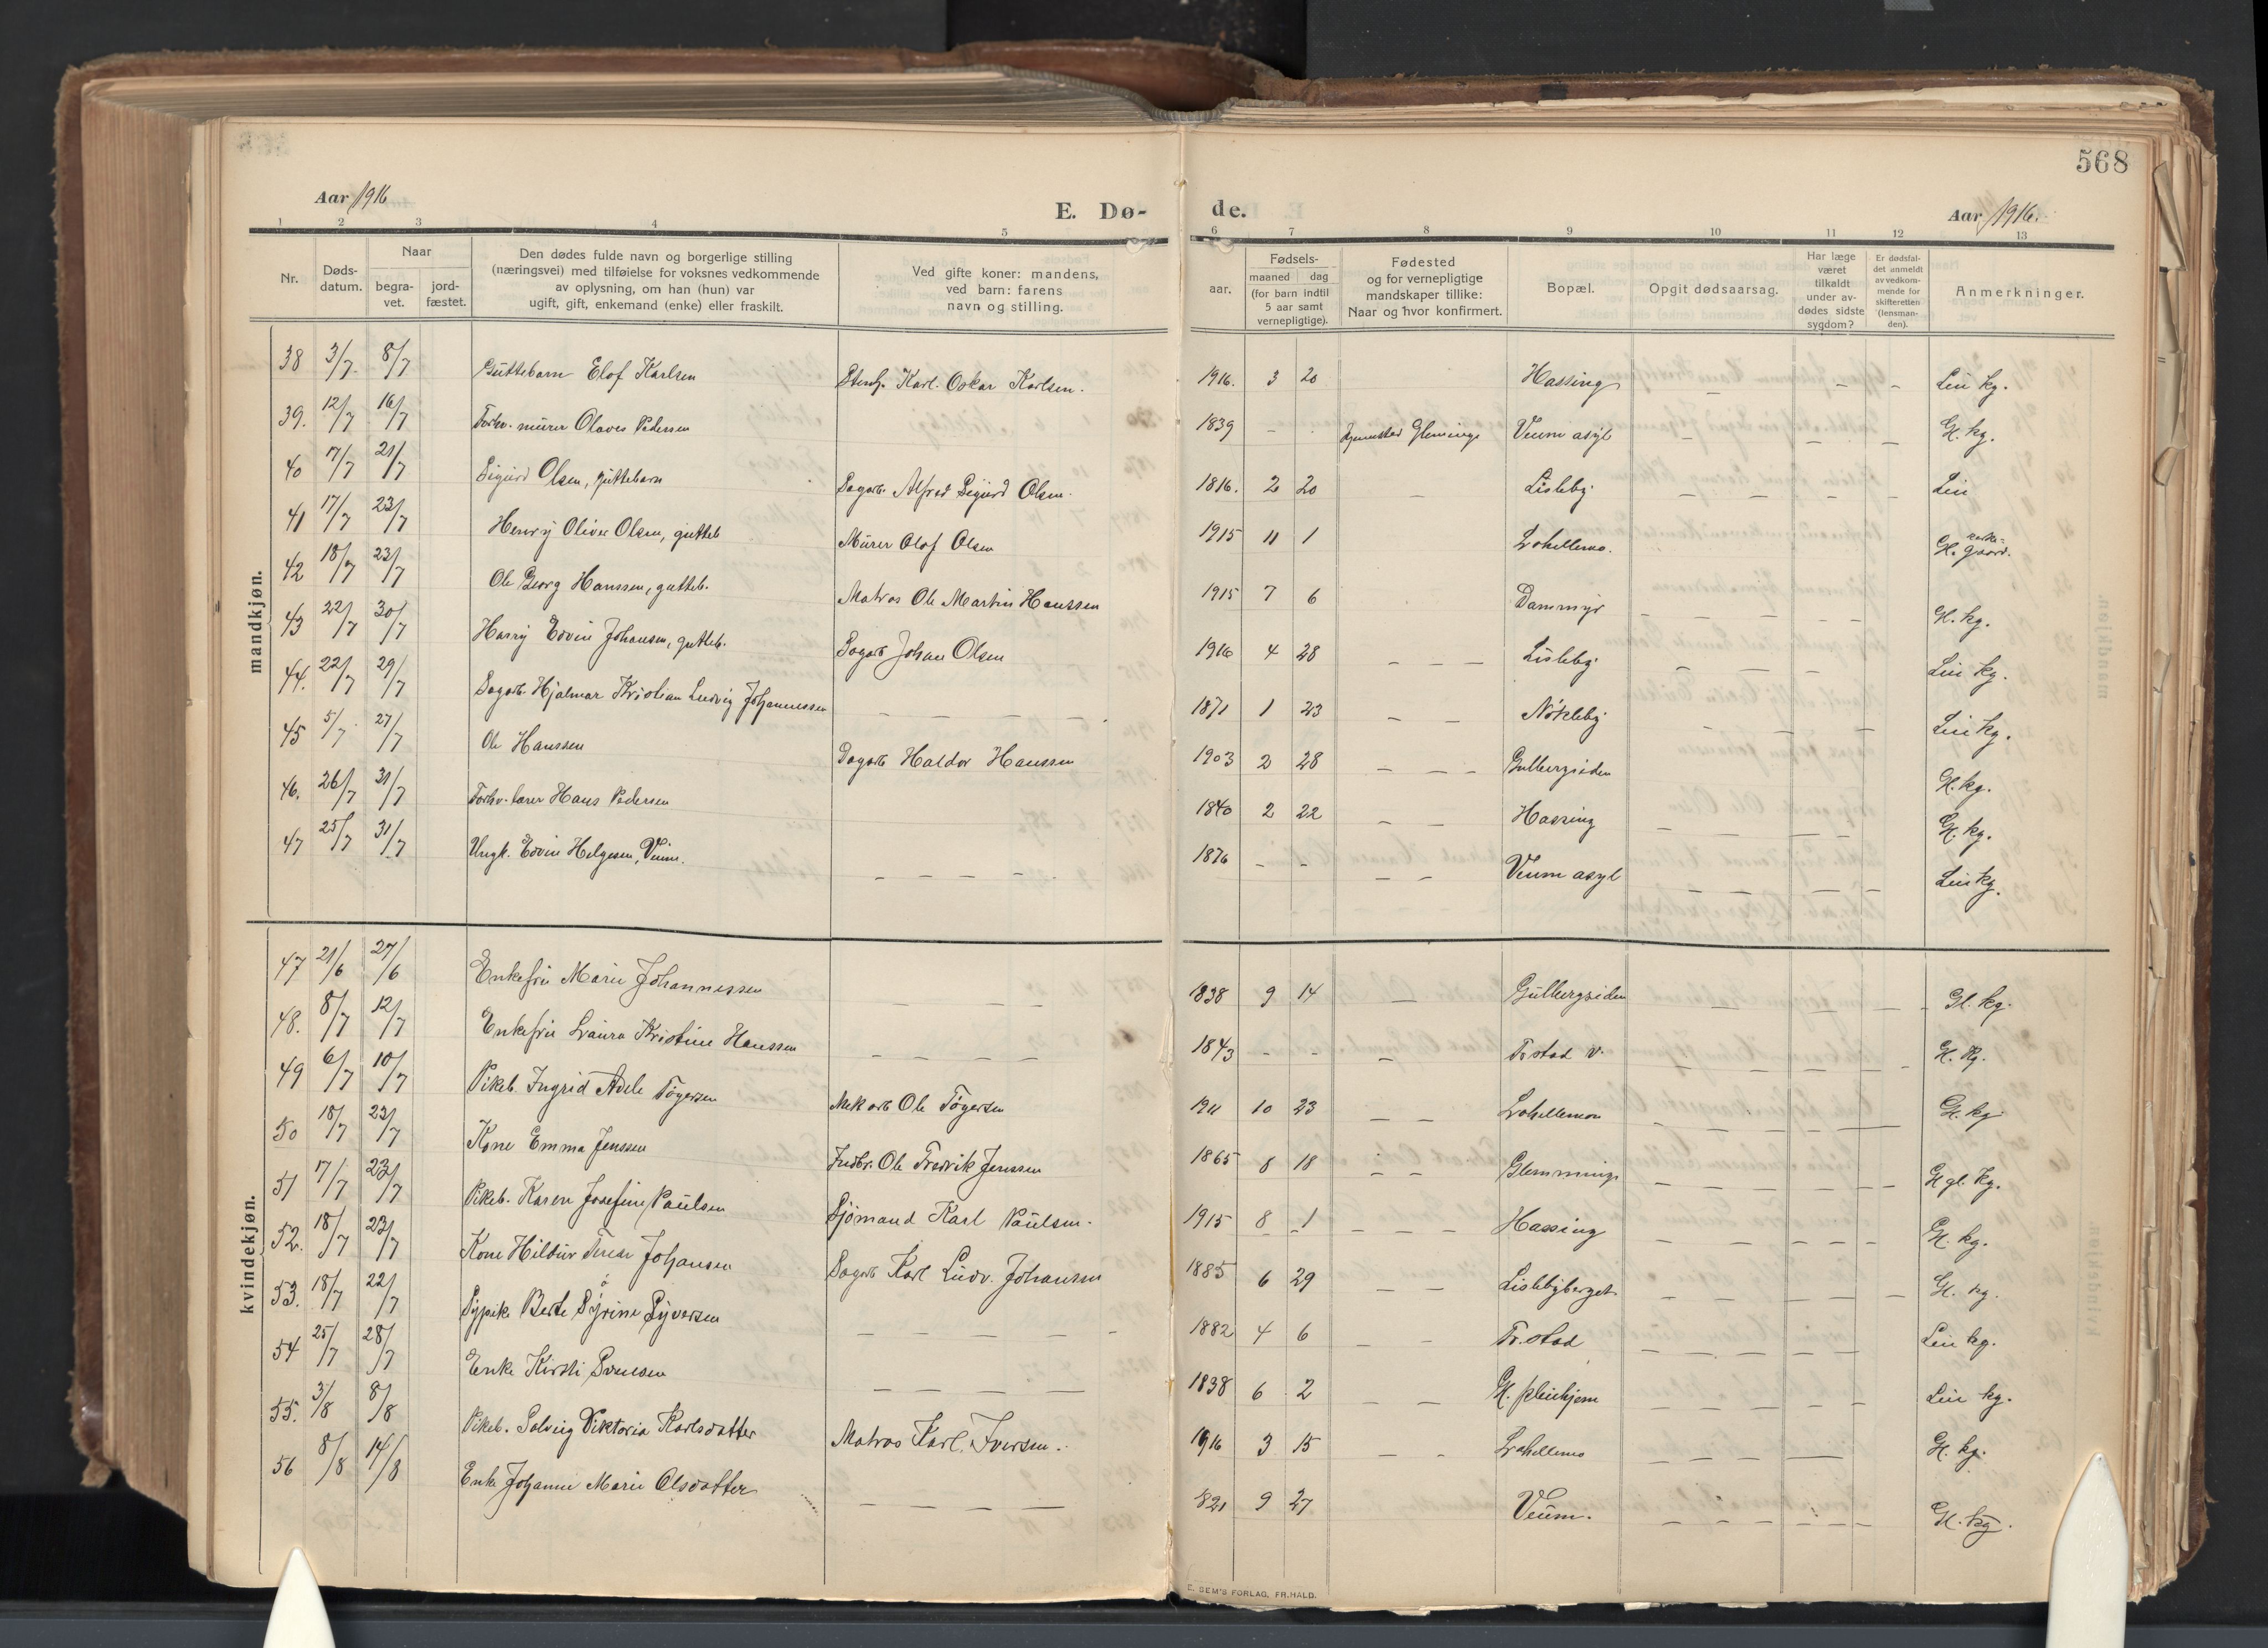 568
Aar 1916
E. Dø-
de.
Aar 1916.
1 2 3 4 5 6 7 8 9 10 11 12 13
Nr.
Døds-
datum.
Naar
begra-
vet.
jord-
fæstet.
Den dødes fulde navn og borgerlige stilling
(næringsvei) med tilføielse for voksnes vedkommende
av oplysning, om han (hun) var
ugift, gift, enkemand (enke) eller fraskilt.
Ved gifte koner: mandens,
ved barn: farens
navn og stilling.
aar.
Fødsels-
maaned dag
(for barn indtil
5 aar samt
vernepligtige).
Fødested
og for vernepligtige
mandskaper tillike:
Naar og hvor konfirmert.
Bopæl.
Opgit dødsaarsag.
Har læge
været
tilkaldt
under av-
dødes sidste
sygdom?
Er dødsfal-
det anmeldt
av vedkom-
mende for
skifteretten
(lensman-
den).
Anmerkninger.
mandkjøn.
38 3/7 8/7 Guttebarn Elof Karlsen Stenh. Karl Oskar Karlsen. 1916. 3 20 Hassing - - - Lei kg.
39. 12/7 16/7 Forhv. murer Olaves Pedersen 1839 - - Glemminge Veum asyl - - - Gl. kg.
40 17/7 21/7 Sigurd Olsen, guttebarn Sagarb. Alfred Sigurd Olsen. 1816. 2 20 - Lisleby - - - - Lei
41 17/7 23/7 Henry Oliver Olsen, gutteb Murer Olof Olsen 1915 11 1 Trohellemo. Gl. kirke=gaard.
42 18/7 23/7 Ole Georg Hanssen, gutteb. Matros Ole Martin Hanssen 1915 7 6 Dammyr - - - - Gl. kg.
43 22/7 30/7 Harry Edvin Johansen, gutteb. Sagarb Johan Olsen 1916 4 28 - - - Lisleby - - - Lei kg.
44. 22/7 29/7 Sagarb. Hjalmar Kristian Ludvig Johannessen - - - - 1871 1 23 - - Nökleby - - - Lei kg.
45 5/7 27/7 Ole Hanssen Sagarb Haldor Hanssen 1903 2 28 - - - Gulbergsiden Gl. kg.
46. 26/7 31/7 Forhv. lærer Hans Pedersen 1840 2 22 - - Hassing - - - - Gl. kg.
47 25/7 31/7 Ungk. Edvin Helgesen, Veum. - - - - - 1876 - - - - Veum asyl - - - - Lei kg.
kvindekjøn.
47 21/6 27/6 Enkefru Marie Johannessen - - - - 1838 9 14 - Gulbergsiden - - - - Gl. kg.
48. 8/7 12/7 Enkefru Laura Kristine Hanssen - - - - 1843 - - - Tr.stad v. - - - - Gl. kg.
49 6/7 10/7 Pikeb. Ingrid Adele Tögersen Mek arb Ole Tögersen 1911 10 23 - - Trohellemon - - - - Gl. kg.
50 18/7 23/7 Kone Emma Jenssen Indbr. Ole Fredrik Jenssen 1865 8 18 - - Glemminge - - - - Gl gl. kg.
51 17/7 23/7 Pikeb. Karen Josefine Paulsen Sjömand Karl Paulsen. 1915 8 1 - - - Hassing - - - - Gl. kg.
52. 18/7 23/7 Kone Hildur Terese Johansen Sagarb Karl Ludv. Johansen 1885 6 29 Lislebyberget - - - - Gl. kg.
53. 18/7 22/7 Sypike Berte Syrine Syversen - - - - - 1882 4 6 - - Tr.stad - - - - Lei kg.
54 25/7 28/7 Enke Kirsti Svensen - - - - 1838 6 2 - - Gl. pleiehjem - - - - Lei kg.
55. 3/8 8/8 Pikeb. Solveig Viktoria Karlsdatter Matros Karl Iversen. 1916 3 15 - - Trohellemo - - - - Gl. kg.
56 8/8 14/8 Enke Johanne Marie Olsdatter - - - - 821 9 27 Veum. - - - - Gl. kg.
E. SEM'S FORLAG, FR.HALD.